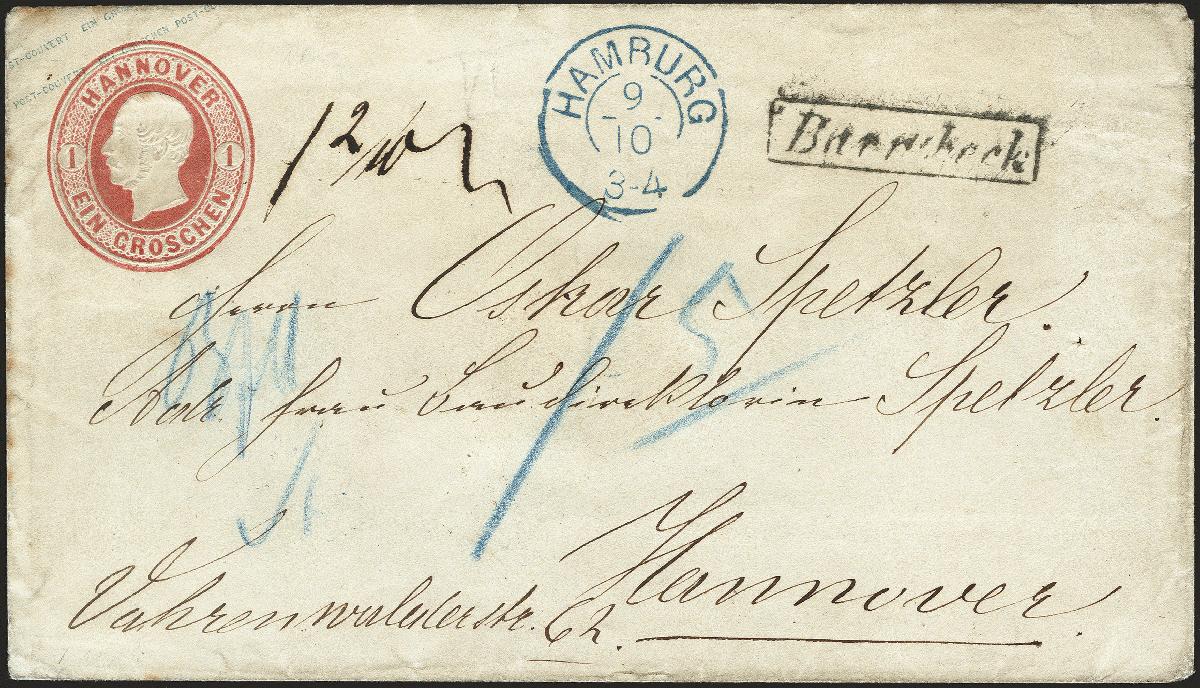 POST-COUVERT EIN GR
POST-COUVERT EIN GROSCHEN POST-CO
HANNOVER
1 1
EIN GROSCHEN
HAMBURG
9
10
3-4
Barmbeck
12/10
1 5
Herrn Oskar Spetzler.
Adr. Frau Baudirektorin Spetzler.
Hannover.
Vahrenwalderstr. 62.